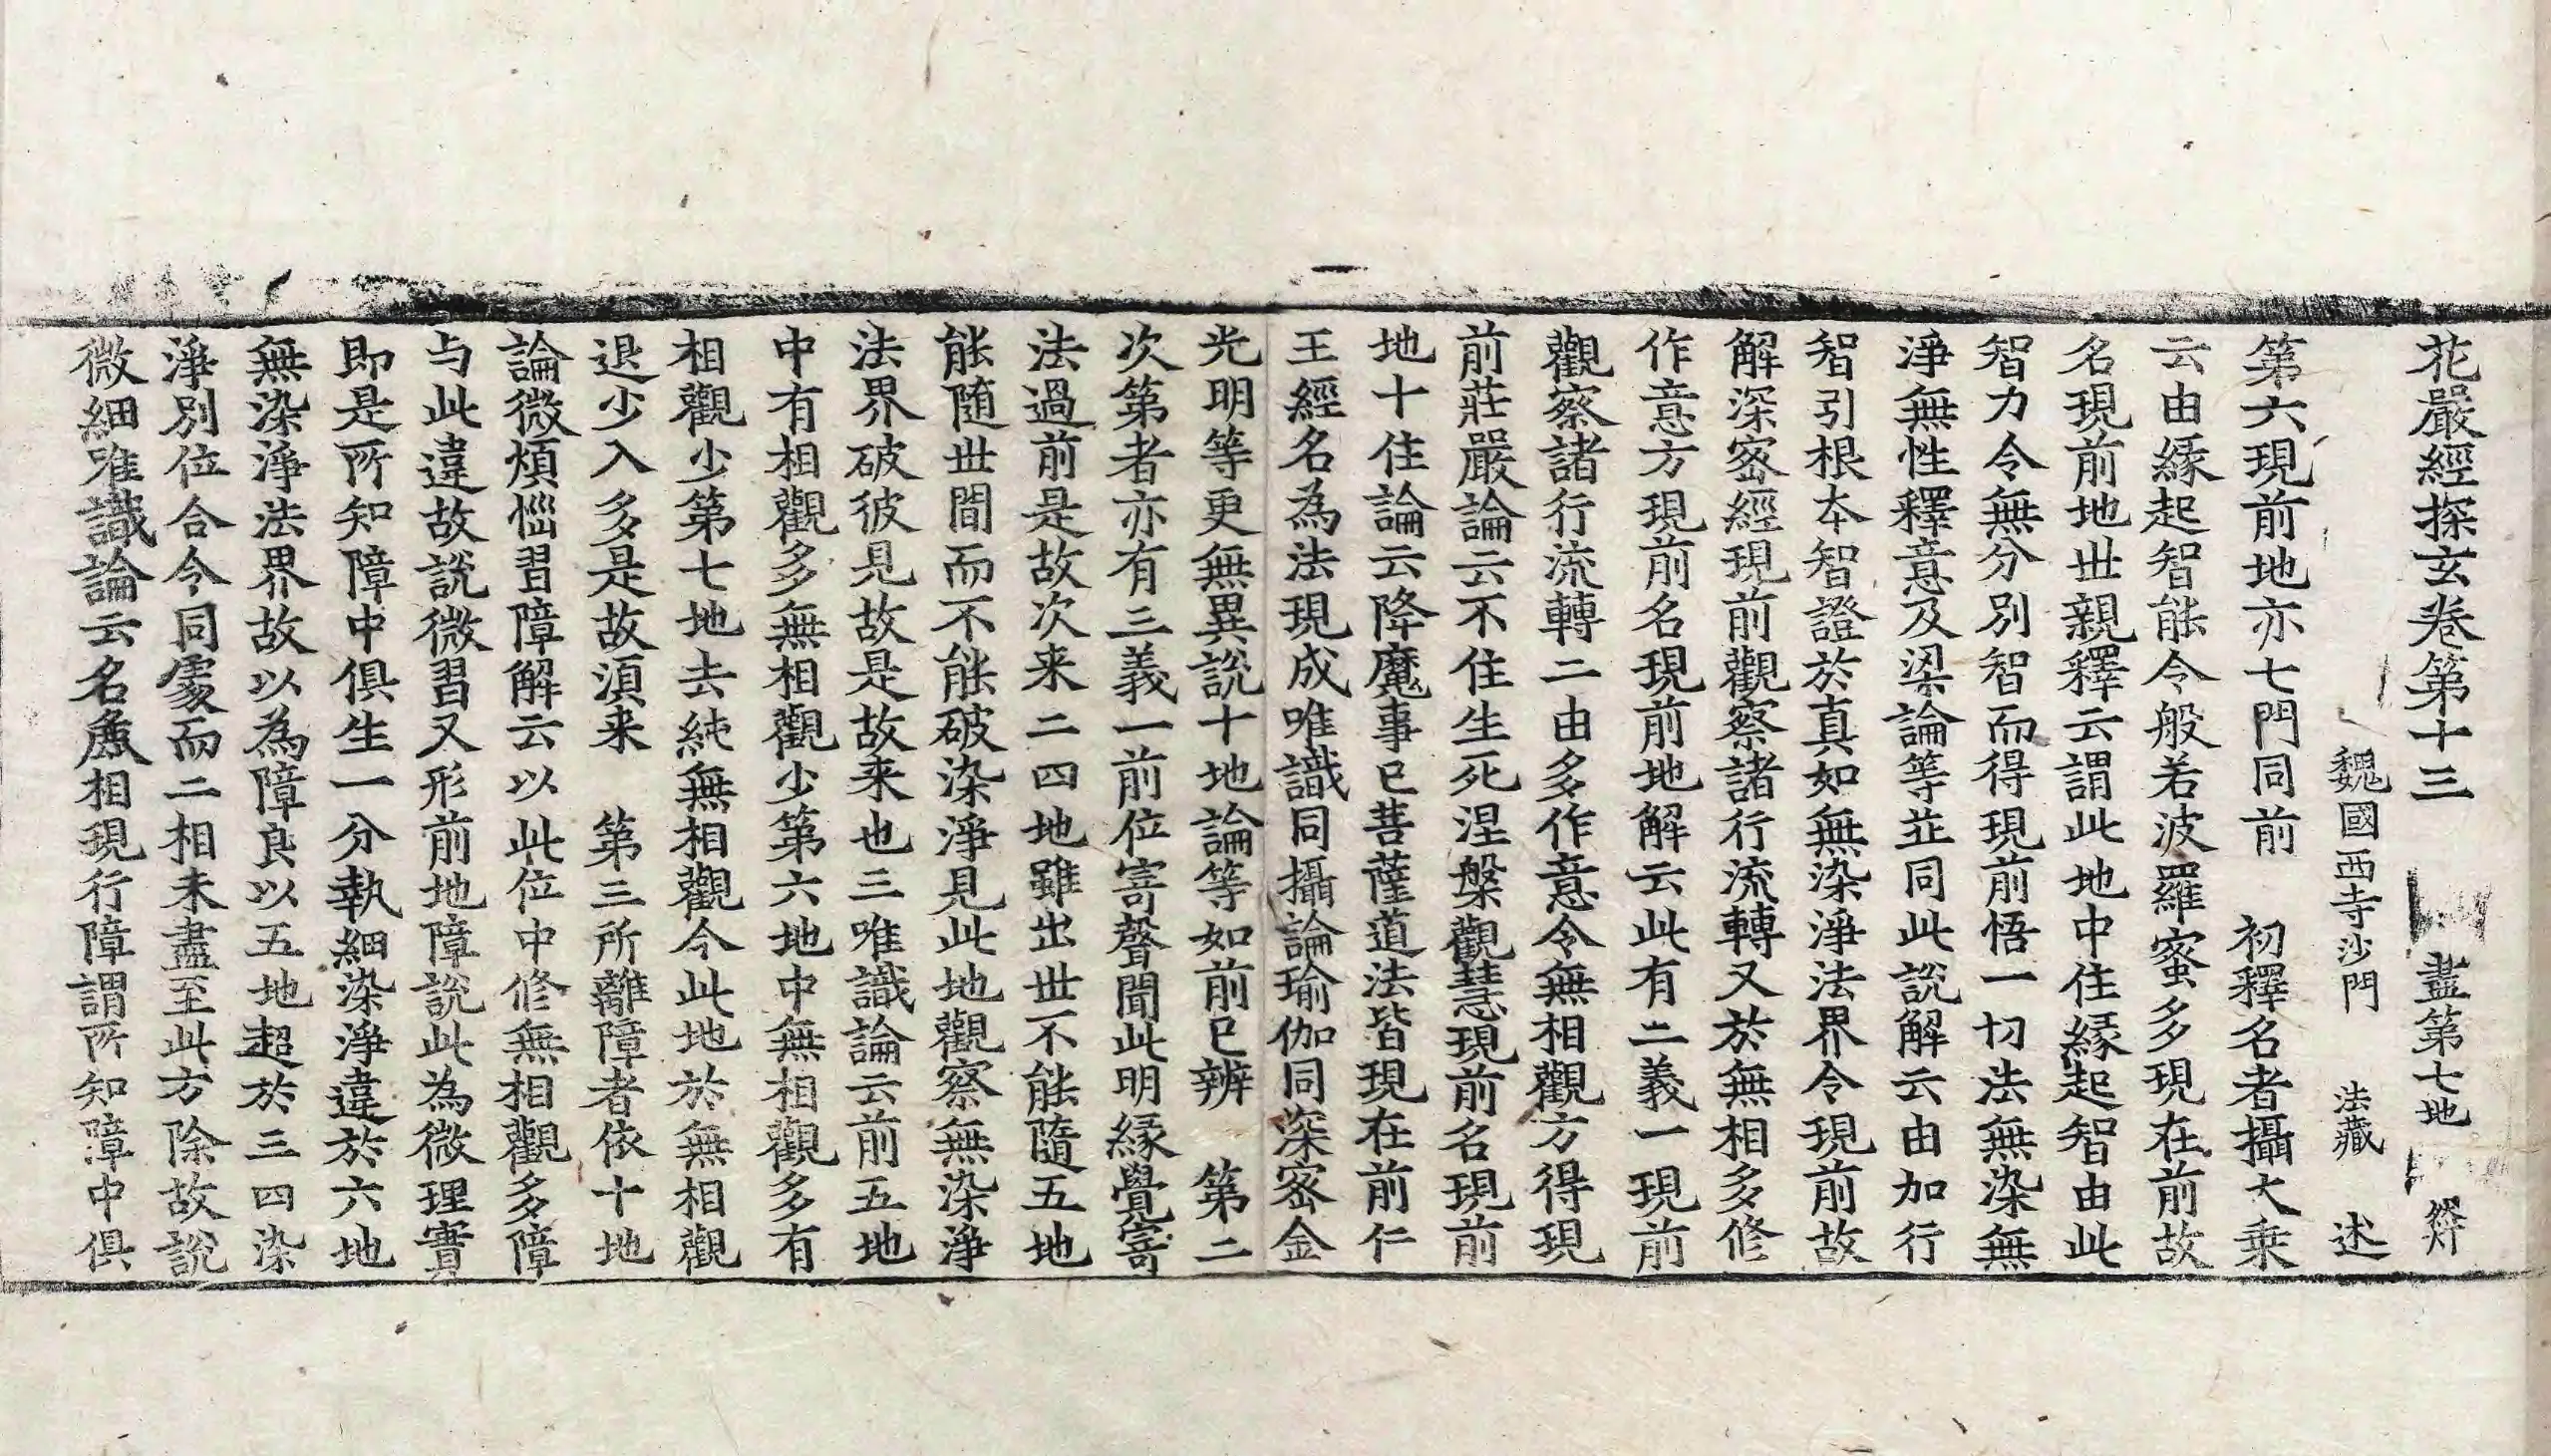 花嚴經探玄卷第十三 盡第七地
魏國西寺沙門 法藏 述
第六現前地亦七門同前 初釋名者攝大乘
云由緣起智能令般若波羅蜜多現在前故
名現前地世親釋云謂此地中住緣起智由此
智力令無分別智而得現前悟一切法無染無
淨無性釋意及梁論等並同此說解云由加行
智引根本智證於真如無染淨法界令現前故
解深密經現前觀察諸行流轉又於無相多修
作意方現前名現前地解云此有二義一現前
觀察諸行流轉二由多作意令無相觀方得現
前莊嚴論云不住生死涅槃觀慧現前名現前
地十住論云降魔事已菩薩道法皆現在前仁
王經名為法現成唯識同攝論瑜伽同深密金
光明等更無異說十地論等如前已辨 第二
次第者亦有三義一前位寄聲聞此明緣覺寄
法過前是故次来二四地雖出世不能隨五地
能隨世間而不能破染淨見此地觀察無染淨
法界破彼見故是故来也三唯識論云前五地
中有相觀多無相觀少第六地中無相觀多有
相觀少第七地去純無相觀今此地於無相觀
退少入多是故須来 第三所離障者依十地
論微煩惱習障解云以此位中修無相觀多障
与此違故說微習又形前地障說此為微理實
即是所知障中俱生一分執細染淨違於六地
無染淨法界故以為障良以五地超於三四染
淨別位合令同處而二相未盡至此方除故說
微細唯識論云名麁相現行障謂所知障中俱